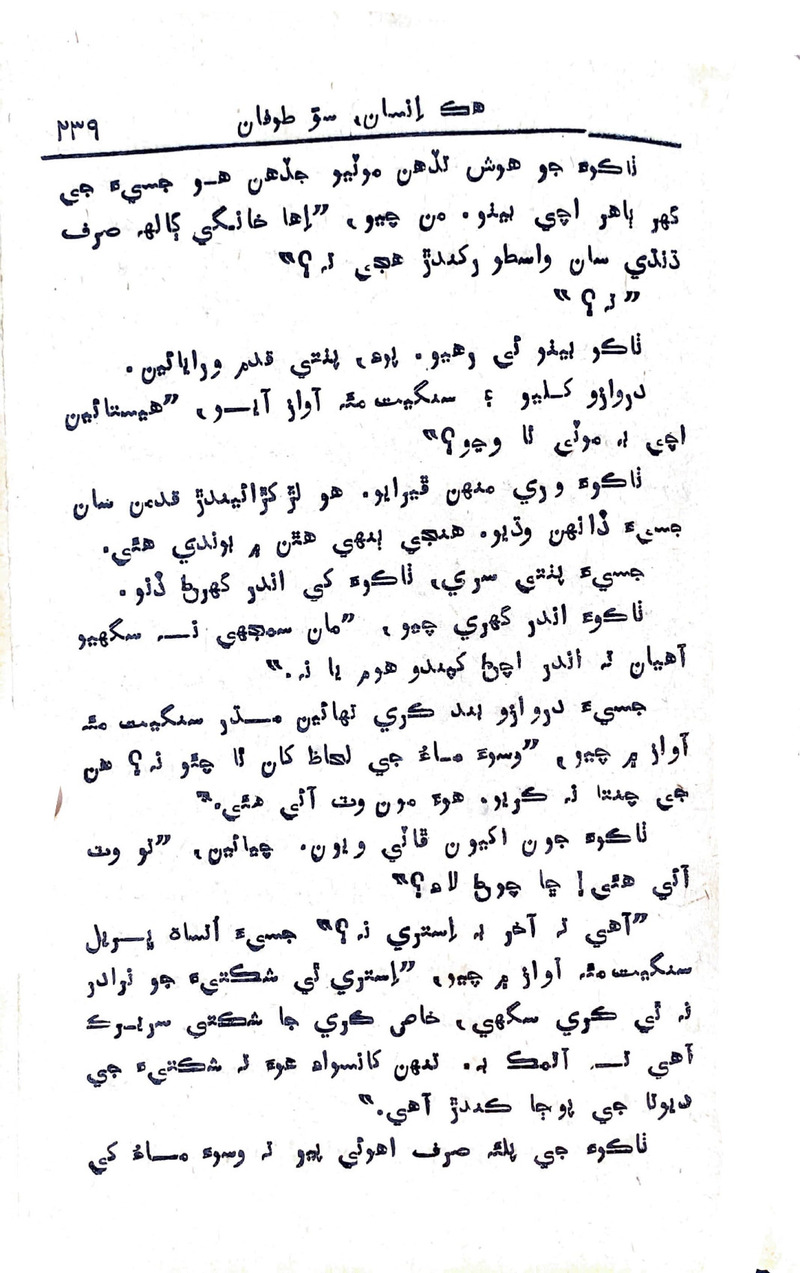 هڪ اِنسان، سؤ طوفان ۲۳۹
ٺاڪوءَ جو هوش تڏهن موٽيو جڏهن هـو جسيءَ جي
گهر ٻاهر اچي بيٺو. من چيو، ”اِها خانگي ڳالهہ صرف
ڌنڌي سان واسطو رکندڙ هجي نہ؟“
”نہ؟“
ٺاڪو بيٺو ئي رهيو. پوءِ، پٺتي قدم ورايائين.
دروازو کليو ۽ سنگيت مئہ آواز آيـو، ”هيستائين
اچي بہ موٽي ٿا وڃو؟“
ٺاڪوءَ وري منهن ڦيرايو. هو لڙکڙائيندڙ قدمن سان
جسيءَ ڏانهن وڌيو. هنجي ٻنهي هٿن ۾ ٻوندي هئي.
جسيءَ پٺتي سري، ٺاڪوءَ کي اندر گهرڻ ڏنو.
ٺاڪوءَ اندر گهري چيو، ”مان سمجهي نـہ سگهيو
آهيان تہ اندر اچڻ کپندو هوم يا نہ.“
جسيءَ دروازو بند ڪري تهائين مـڌر سنگيت مئہ
آواز ۾ چيو، ”وسوءَ مـاءُ جي لحاظ کان ٿا چئو نہ؟ هن
جي چنتا نہ ڪريو. هوءَ مون وٽ آئي هئي.“
ٺاڪوءَ جون اکيون ڦاٽي ويون. چيائين، ”تو وٽ
آئي هئي! ڇا چوڻ لاءِ؟“
”آهي تہ آخر بہ اِستري نہ؟“ جسيءَ اُتساهہ ڀـريل
سنگيت مئہ آواز ۾ چيو، ”اِستري ئي شڪتيءَ جو نرادر
نہ ئي ڪري سگهي، خاص ڪري جا شڪتي سريرڪ
آهي تـہ آتمڪ بہ. تنهن کانسواءِ هوءَ تہ شڪتيءَ جي
ديوتا جي پوڄا ڪندڙ آهي.“
ٺاڪوءَ جي پلئہ صرف اهوئي پيو تہ وسوءَ مـاءُ کي